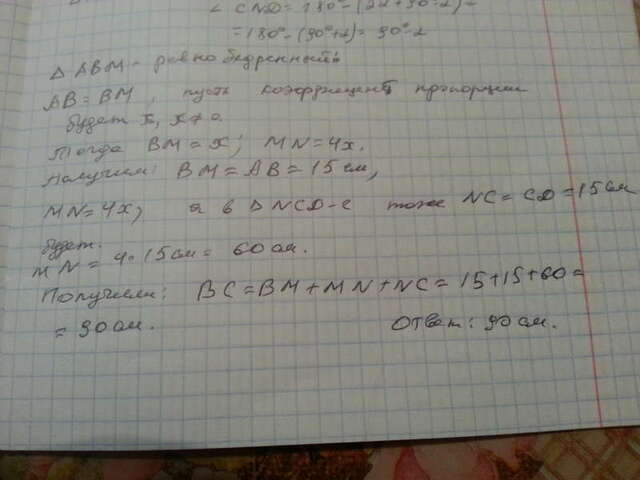 ∠ CND = 180° - (2α + 90° - α) =
= 180° - (90° + α) = 90° - α
△ ABM - равнобедренный
AB = BM, пусть коэффициент пропорции
будет x, x ≠ 0.
Тогда BM = x; MN = 4x.
Получим: BM = AB = 15 см,
MN = 4x, а в △ NCD-е тоже NC = CD = 15 см
будет.
MN = 4 · 15 см = 60 см.
Получили: BC = BM + MN + NC = 15 + 15 + 60 =
= 90 см. Ответ: 90 см.